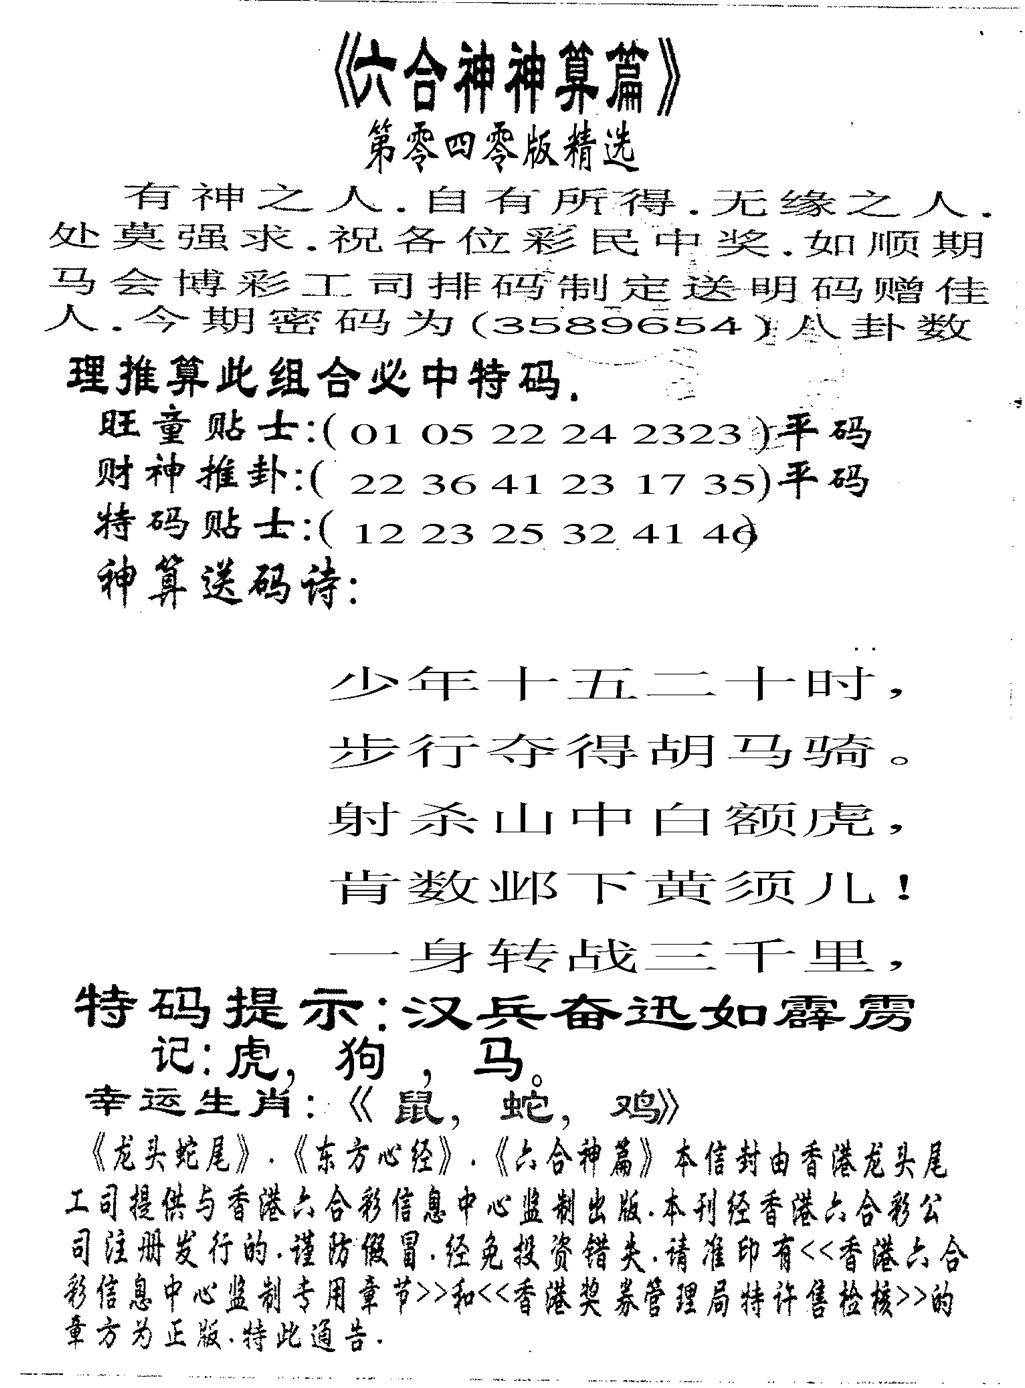 《六合神神算篇》
第零四零版精选
有神之人.自有所得.无缘之人.
处莫强求.祝各位彩民中奖.如顺期
马会博彩工司排码制定送明码赠佳
人.今期密码为(3589654)八卦数
理推算此组合必中特码.
旺童贴士:( 01 05 22 24 2323 )平码
财神推卦:( 22 36 41 23 17 35)平码
特码贴士:( 12 23 25 32 41 46)
神算送码诗:
少年十五二十时,
步行夺得胡马骑。
射杀山中白额虎,
肯数邺下黄须儿!
一身转战三千里,
特码提示:汉兵奋迅如霹雳
记:虎, 狗 , 马。
幸运生肖:《 鼠, 蛇, 鸡》
《龙头蛇尾》.《东方心经》.《六合神篇》本信封由香港龙头尾
工司提供与香港六合彩信息中心监制出版.本刊经香港六合彩公
司注册发行的.谨防假冒.经免投资错失.请准印有<<香港六合
彩信息中心监制专用章节>>和<<香港奖券管理局特许售检核>>的
章方为正版.特此通告.